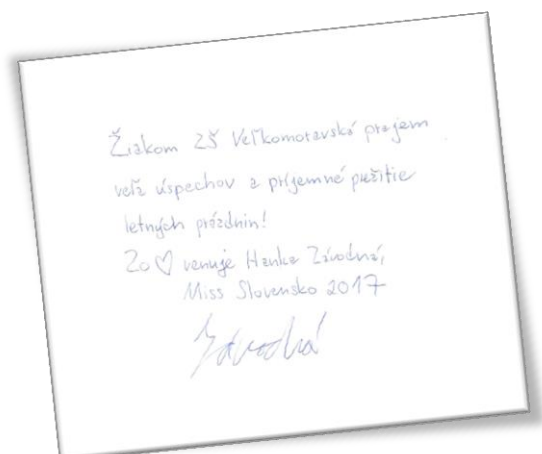 Žiakom ZŠ Veľkomoravská prajem
veľa úspechov a príjemné prežitie
letných prázdnin!
Zo ♡ venuje Hanka Závodná,
Miss Slovensko 2017
Závodná